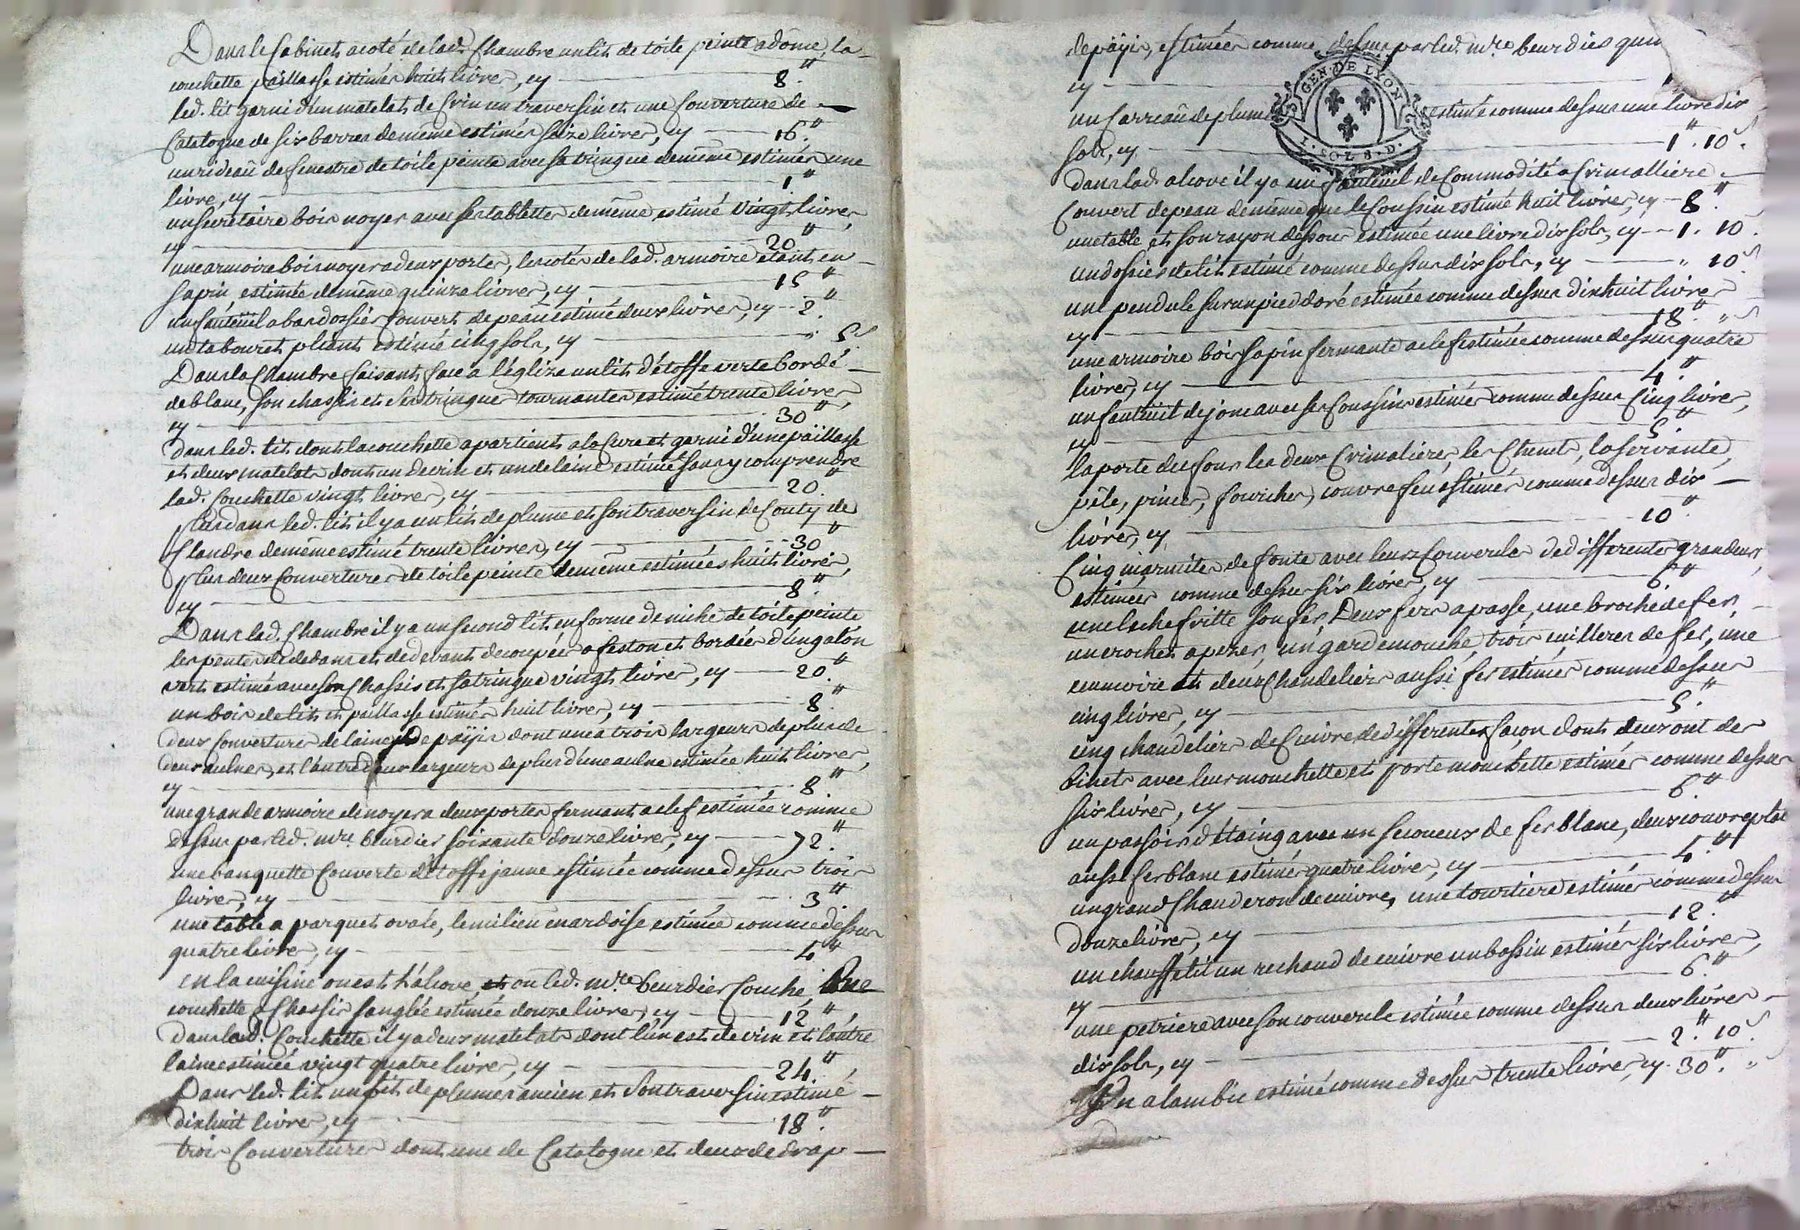 Dans le Cabinet a coté de lad. Chambre un lit de toile peinte a dôme, la
couchette paillasse estimés huit livres, cy — 8.″
led. lit garni d'un matelat de Crin un traversin et une Couverture de
Catalogne de six barres de même estimés seize livres, cy — 16.″
un rideau de fenestre de toile peinte avec sa tringue de même estimés une
livre, cy — 1.″
un secretaire bois noyer avec ses tablettes de même estimé vingt livres,
cy — 20.″
une armoire bois noyer a deux portes, les cotés de lad. armoire étant en
sapin estimée de même quinze livres, cy — 15″
un fauteüil a bas dossier couvert de peau estimé deux livres, cy — 2.″
un tabouret pliant estimé cinq sols, cy — 5s
Dans la Chambre faisant face a l'églize un lit d'étoffe verte bordé
de blanc, son chassis et ses tringues tournantes estimé trente livres,
cy — 30″
Dans led. lit dont la couchette apartient a la Cure et garni d'une païllasse
et deux matelats dont un de crin et un de laine estimés sans y comprendre
lad. Couchette vingt livres, cy — 20.″
Plus dans led. lit il y a un lit de plume et son traversin de Couty de
flandre de même estimé trente livres, cy — 30″
Plus deux Couvertures de toile peinte de même estimées huit livres,
cy — 8.″
Dans lad. Chambre il y a un second lit en forme de niche de toile peinte
les pentes de dedans et de devant decoupées a feston et bordées d'un galon
vert estimé avec son Chassis et sa tringue vingt livres, cy — 20.″
un bois de lit et paillasse estimés huit livres, cy — 8.″
Deux Couvertures de laine de païs dont une a trois largeurs de plus de
deux aulnes, et l'autre deux largeurs de plus d'une aulne estimées huit livres,
cy — 8″
une grande armoire de noyer a deux portes fermant a clef estimée comme
dessus par led. mre. beurdier soixante douze livres, cy — 72.″
une banquette Couverte d'étoffe jaune estimée comme dessus trois
livres, cy — 3.″
une table a parquet ovale, le milieu en ardoise estimée comme dessus
quatre livres, cy — 4″
en la cuisine ou est l'alcove, et ou led. mre beurdier Couche, Une
couchette a Chassis sanglée estimée douze livres, cy — 12″
Dans lad. Couchette il y a deux matelats dont l'un est de crin et l'autre
laine estimés vingt quatre livres, cy — 24.″
Dans led. lit un lit de plumes ancien et son traversin estimé
dixhuit livres, cy — 18.″
trois Couvertures dont une de Catalogne et deux de drap
de païs, estimées comme dessus par led. mre beurdier
cy
GEN. DE LYON
1. SOL 8. D.
un Carreau de plume estimé comme dessus une livre dix
sols, cy — 1.″ 10s.
dans lad. alcove il y a un fauteuil de Commodité a Crimalliere
Couvert de peau de même que le Coussin estimé huit livres, cy — 8.″
une table et son rayon dessous estimée une livre dix sols, cy — 1. 10.
un dossier de lit estimé comme dessus dix sols, cy — ″ 10s
un pendule sur un pied doré estimée comme dessus dixhuit livres
cy — 18.″ ″s
une armoire bois sapin fermante a clef estimée comme dessus quatre
livres, cy — 4.″
un fauteuil de jonc avec ses Coussins estimés comme dessus Cinq livres,
cy — 5.″
la porte du four les deux Crimalieres les Chenets, la servante,
pêle, pinces, fourches, couvre feu estimés comme dessus dix
livres, cy — 10″
Cinq marmites de fonte avec leurs Couvercles de differentes grandeurs,
estimées comme dessus six livres, cy — 6″
une lechefritte son fer, Deux fers a passe, une broche de fer,
un crochet a pezer, un garde mouche, trois cuilleres de fer, une
et deux Chandeliers aussi fer estimés comme dessus
cinq livres, cy — 5.″
cinq chandeliers de Cuivre de differentes façon dont deux ont des
binets avec leur mouchette et porte mouchette estimés comme dessus
six livres, cy — 6.″
un passoir d'étaing avec un secoueux de fer blanc, deux couvreplat
aussi fer blanc estimés quatre livres, cy — 4.″
un grand Chauderon de cuivre, une tourtiere estimés comme dessus
douze livres, cy — 12.″
un chauffelit un rechaud de cuivre un bassin estimés six livres,
cy — 6.″
une petriere avec son couvercle estimée comme dessus deux livres
dix sols, cy — 2.″ 10s
Un alambic estimé comme dessus trente livres, cy. 30″. ″s